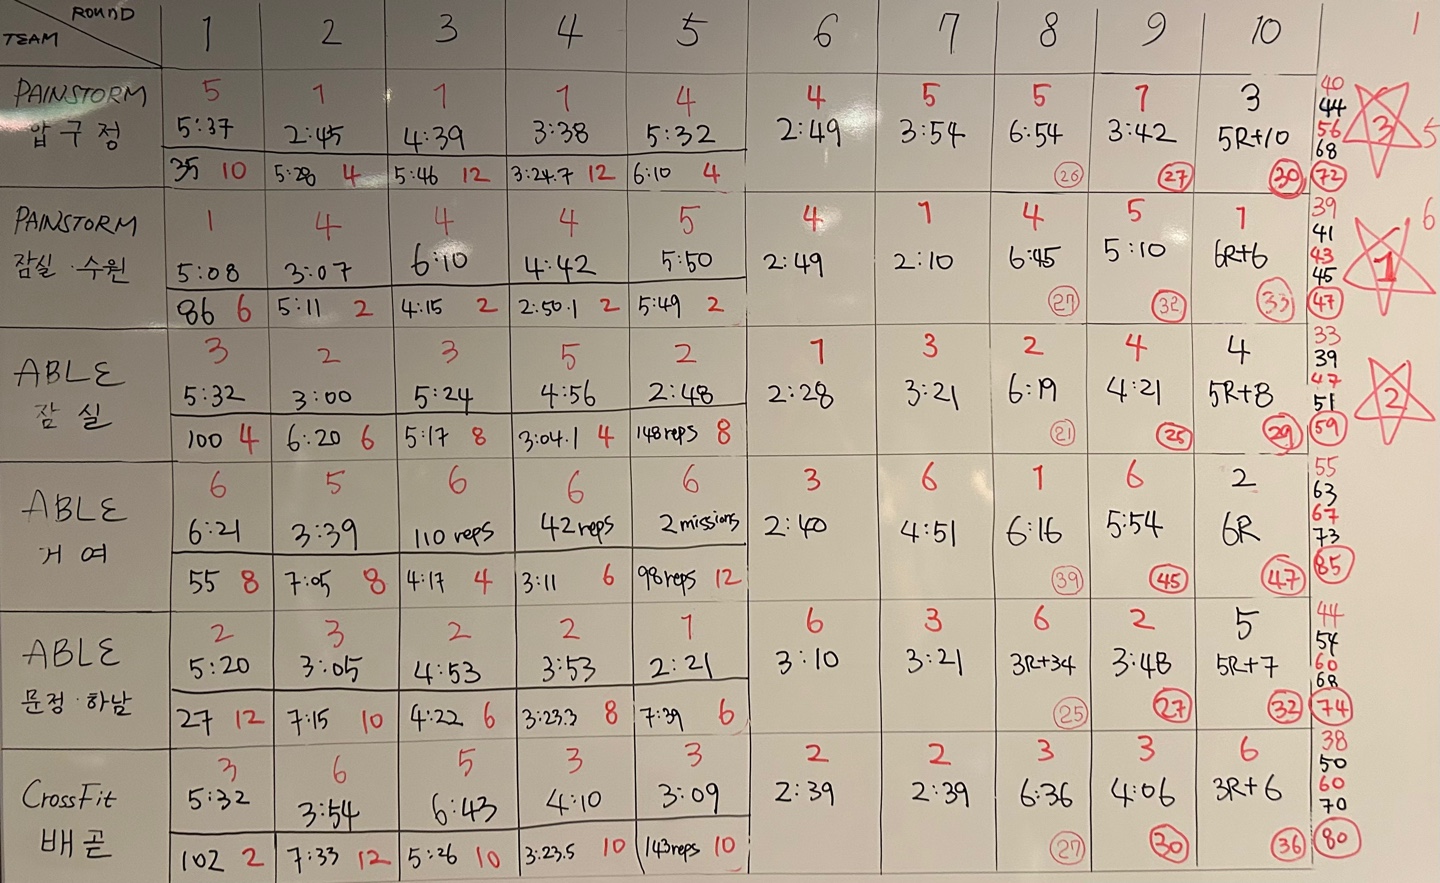 ROUND
TEAM
1 2 3 4 5 6 7 8 9 10 1
PAINSTORM
압구정
5 1 1 1 4 4 5 5 1 3
5:37 2:45 4:39 3:38 5:32 2:49 3:54 6:54 3:42 5R+10
35 10 5:28 4 5:46 12 3:24.7 12 6:10 4 26 27 30
40
44
56
68
72
3 5
PAINSTORM
잠실·수원
1 4 4 4 5 4 1 4 5 1
5:08 3:07 6:10 4:42 5:50 2:49 2:10 6:45 5:10 6R+6
86 6 5:11 2 4:15 2 2:50.1 2 5:49 2 27 32 33
39
41
43
45
47
1 6
ABLE
잠실
3 2 3 5 2 1 3 2 4 4
5:32 3:00 5:24 4:56 2:48 2:28 3:21 6:19 4:21 5R+8
100 4 6:20 6 5:17 8 3:04.1 4 148reps 8 21 25 29
33
39
47
51
59
2
ABLE
거여
6 5 6 6 6 3 6 1 6 2
6:21 3:39 110 reps 42reps 2missions 2:40 4:51 6:16 5:54 6R
55 8 7:05 8 4:17 4 3:11 6 98reps 12 39 45 47
55
63
67
73
85
ABLE
문정·하남
2 3 2 2 1 6 3 6 2 5
5:20 3:05 4:53 3:53 2:21 3:10 3:21 3R+34 3:48 5R+7
27 12 7:15 10 4:22 6 3:23.3 8 7:39 6 25 27 32
44
54
60
68
74
CrossFit
배곧
3 6 5 3 3 2 2 3 3 6
5:32 3:54 6:43 4:10 3:09 2:39 2:39 6:36 4:06 3R+6
102 2 7:33 12 5:26 10 3:23.5 10 143reps 10 27 30 36
38
50
60
70
80